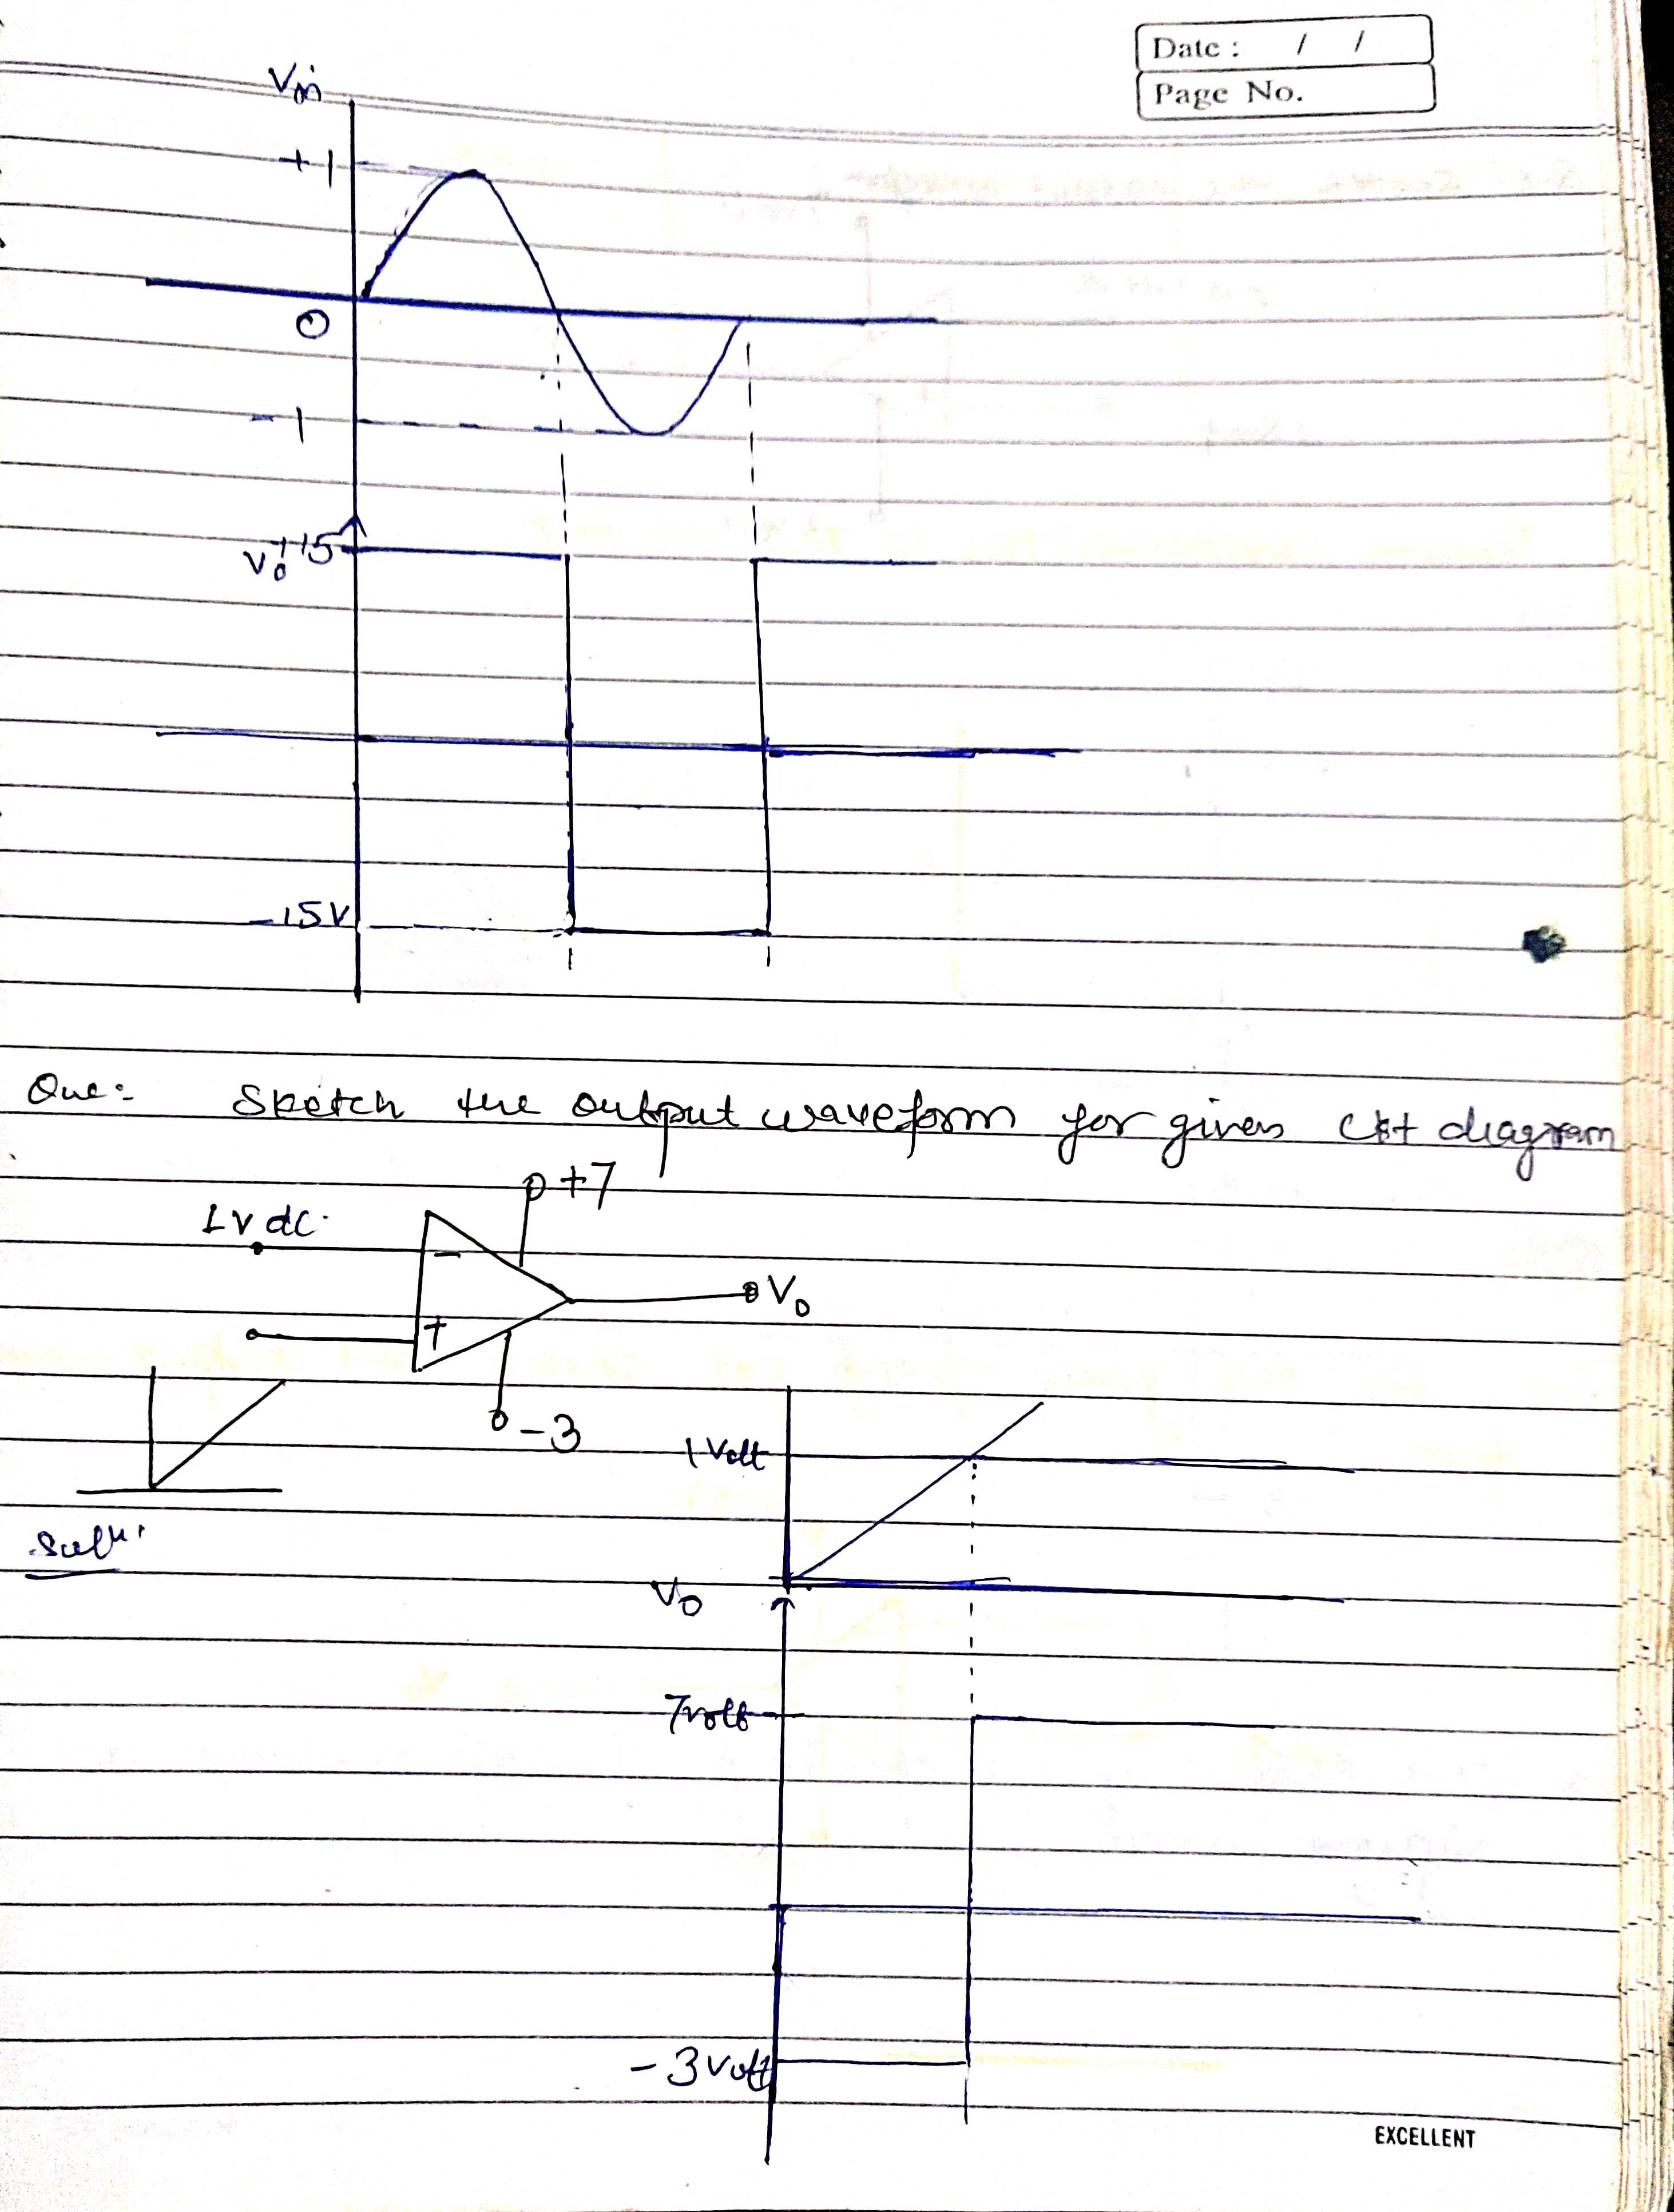 Date : / /
Page No.
Vin
+1
0
-1
Vo +15
-15V
Que:- Sketch the output waveform for given Ckt diagram
+7
1V dc.
-
Vo
+
-3
1 Volt
Soln:
Vo
7volt
-3 Volt
EXCELLENT